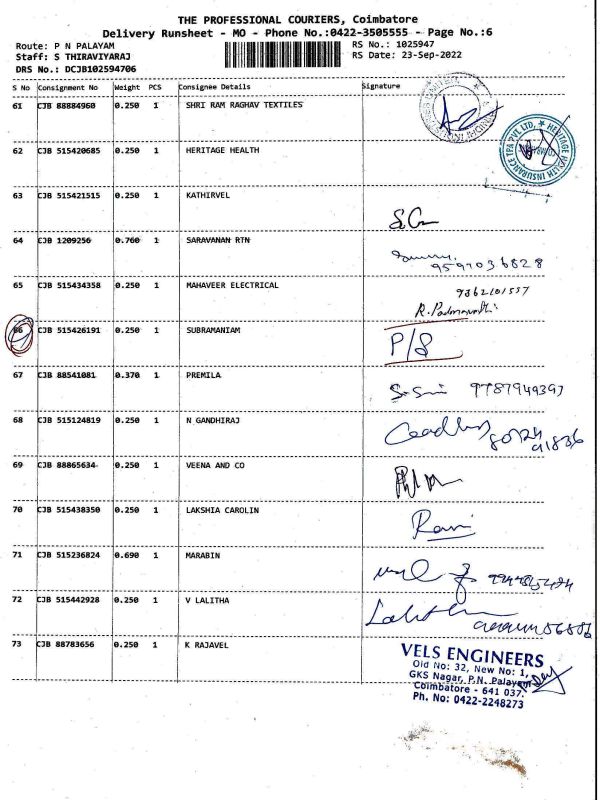 THE PROFESSIONAL COURIERS, Coimbatore
Delivery Runsheet - MO - Phone No.:0422-3505555 - Page No.:6
Route: P N PALAYAM
RS No.: 1025947
Staff: S THIRAVIYARAJ
RS Date: 23-Sep-2022
DRS No.: DCJB102594706
S No Consignment No Weight PCS Consignee Details Signature
61 CJB 88884960 0.250 1 SHRI RAM RAGHAV TEXTILES
62 CJB 515420685 0.250 1 HERITAGE HEALTH
HERITAGE HEALTH INSURANCE TPA PVT LTD.
63 CJB 515421515 0.250 1 KATHIRVEL
64 CJB 1209256 0.760 1 SARAVANAN RTN
9597036828
65 CJB 515434358 0.250 1 MAHAVEER ELECTRICAL
9362101557
R. Padmavathi
66 CJB 515426191 0.250 1 SUBRAMANIAM
P/S
67 CJB 88541081 0.370 1 PREMILA
9787949397
68 CJB 515124819 0.250 1 N GANDHIRAJ
69 CJB 88865634 0.250 1 VEENA AND CO
70 CJB 515438350 0.250 1 LAKSHIA CAROLIN
Ravi
71 CJB 515236824 0.690 1 MARABIN
72 CJB 515442928 0.250 1 V LALITHA
Lalitha
73 CJB 88783656 0.250 1 K RAJAVEL
VELS ENGINEERS
Old No: 32, New No: 1,
GKS Nagar, P.N. Palayam
Coimbatore - 641 037.
Ph. No: 0422-2248273